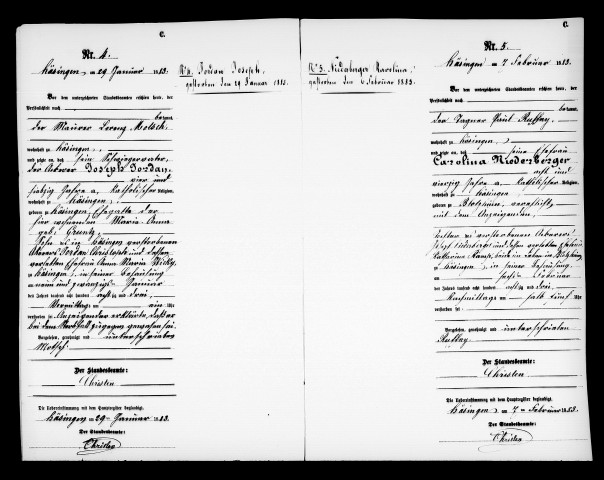 C.
Nr. 4.
Häsingen, am 29 Januar 1883.
Vor dem unterzeichneten Standesbeamten erschien heute, der
Persönlichkeit nach
bekannt,
der Maurer Lorenz Motsch
wohnhaft zu Häsingen,
und zeigte an, daß sein Schwiegervater,
der Ackerer Joseph Jordan,
vier und
siebzig Jahre a, katholischer Religion,
wohnhaft zu Häsingen,
geboren zu Häsingen, Ehegatte der
Maria Anna
geb.
Sohn des in Häsingen verstorbenen
Ackerers Jordan Christoph und dessen
verlebten Ehefrau Anna Maria
zu Häsingen, in seiner Behausung
am neun und zwanzigsten Januar
des Jahres tausend acht hundert achtzig und drei,
Vormittags um Uhr
verstorben sei. Anzeigender erklärte, daß er
bei dem Sterbfall zugegen gewesen sei.
Vorgelesen, genehmigt und unterschrieben
Motsch.
Der Standesbeamte:
Christen
Die Uebereinstimmung mit dem Hauptregister beglaubigt.
Häsingen, am 29 Januar 1883.
Der Standesbeamte:
Christen
No 4. Jordan Joseph,
gestorben den 29 Januar 1883.
No 5. Karolina,
gestorben den 6 Februar 1883.
C.
Nr. 5.
Häsingen, am 7 Februar 1883.
Vor dem unterzeichneten Standesbeamten erschien heute, der
Persönlichkeit nach
bekannt,
der Tagner Paul Ruffay,
wohnhaft zu Häsingen,
und zeigte an, daß seine Ehefrau
Carolina Niederberger
acht und
vierzig Jahre a, katholischer Religion,
wohnhaft zu Häsingen
geboren zu Blotzheim, verehelicht
mit dem Anzeigenden,
Tochter des verstorbenen Ackerers
und dessen verlebten Ehefrau
Katharina
zu Häsingen, in seiner Behausung
am sechsten Februar
des Jahres tausend acht hundert achtzig und drei,
Nachmittags um halb fünf Uhr
verstorben sei.
Vorgelesen, genehmigt und unterschrieben
Ruffay
Der Standesbeamte:
Christen
Die Uebereinstimmung mit dem Hauptregister beglaubigt.
Häsingen, am 7 Februar 1883.
Der Standesbeamte:
Christen